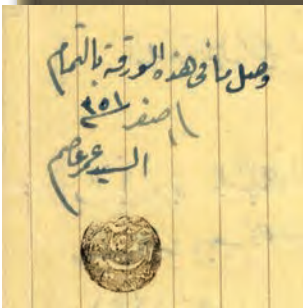 وصل ما في هذه الورقة بالتمام
١ صفر ٣٥١
السيد عمر عاصم